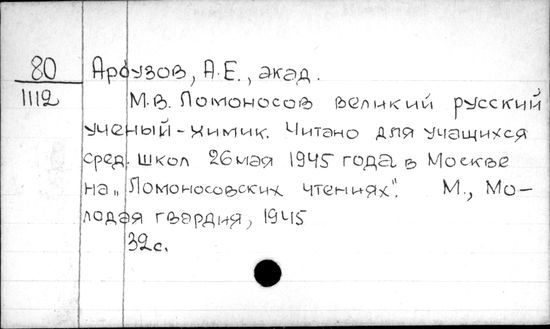 80 Арбузов, А.Е., акад.
1112 М.В. Ломоносов великий русский
ученый-химик. Читано для учащихся
сред. школ 26 мая 1945 года в Москве
на „Ломоносовских чтениях". М., Мо-
лодая гвардия, 1945
32 с.